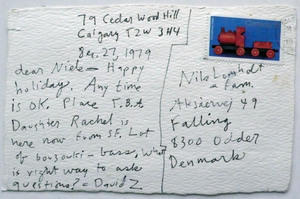 79 Cedar Wood Hill
Calgary T2W 3H4
Dec. 27, 1979
dear Niels – Happy
holiday. Any time
is OK. Place T.B.A
Daughter Rachel is
here now from SF. Lot
of bouzouki – bass, What
is right way to ask
questions? = David Z
Nils Lomholt
+ Fam.
49
Falling
8300 Odder
Denmark